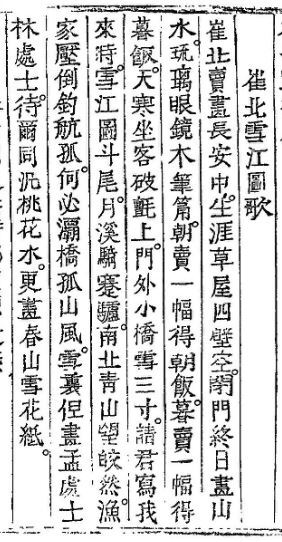 崔北雪江圖歌
崔北賣畫長安中。生涯草屋四壁空。閉門終日畫山
水。琉璃眼鏡木筆筩。朝賣一幅得朝飯。暮賣一幅得
暮飯。天寒坐客破氈上。門外小橋雪三寸。請君寫我
來時雪江圖斗尾月溪騎蹇驢。南北靑山望皎然漁
家壓倒釣航孤。何必灞橋孤山風雪裏但畫孟處士
林處士。待爾同汎桃花水。更畫春山雪花紙。